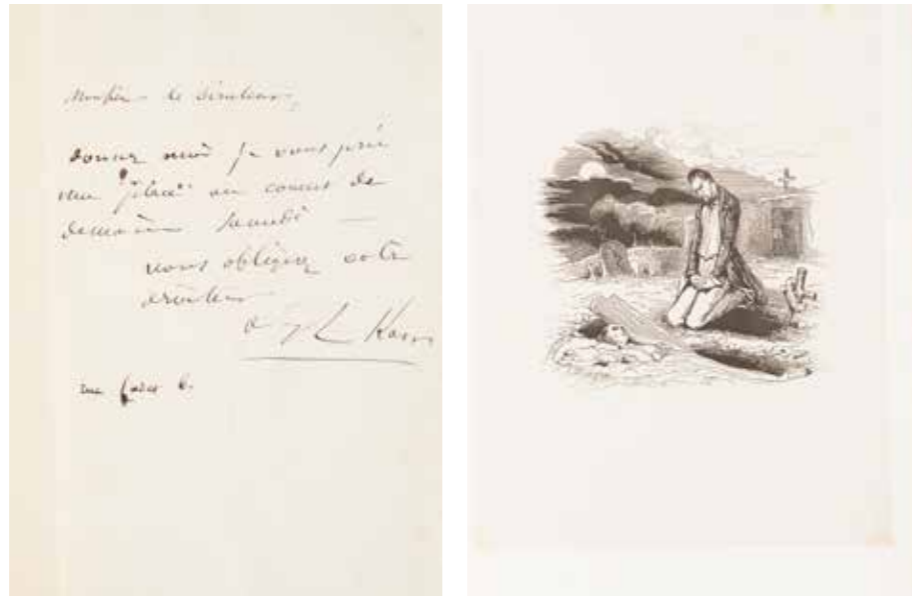 Monsieur le Directeur,
donnez moi je vous prie
une place au concert de
demain Samedi —
vous obligerez votre
serviteur
Karr
rue